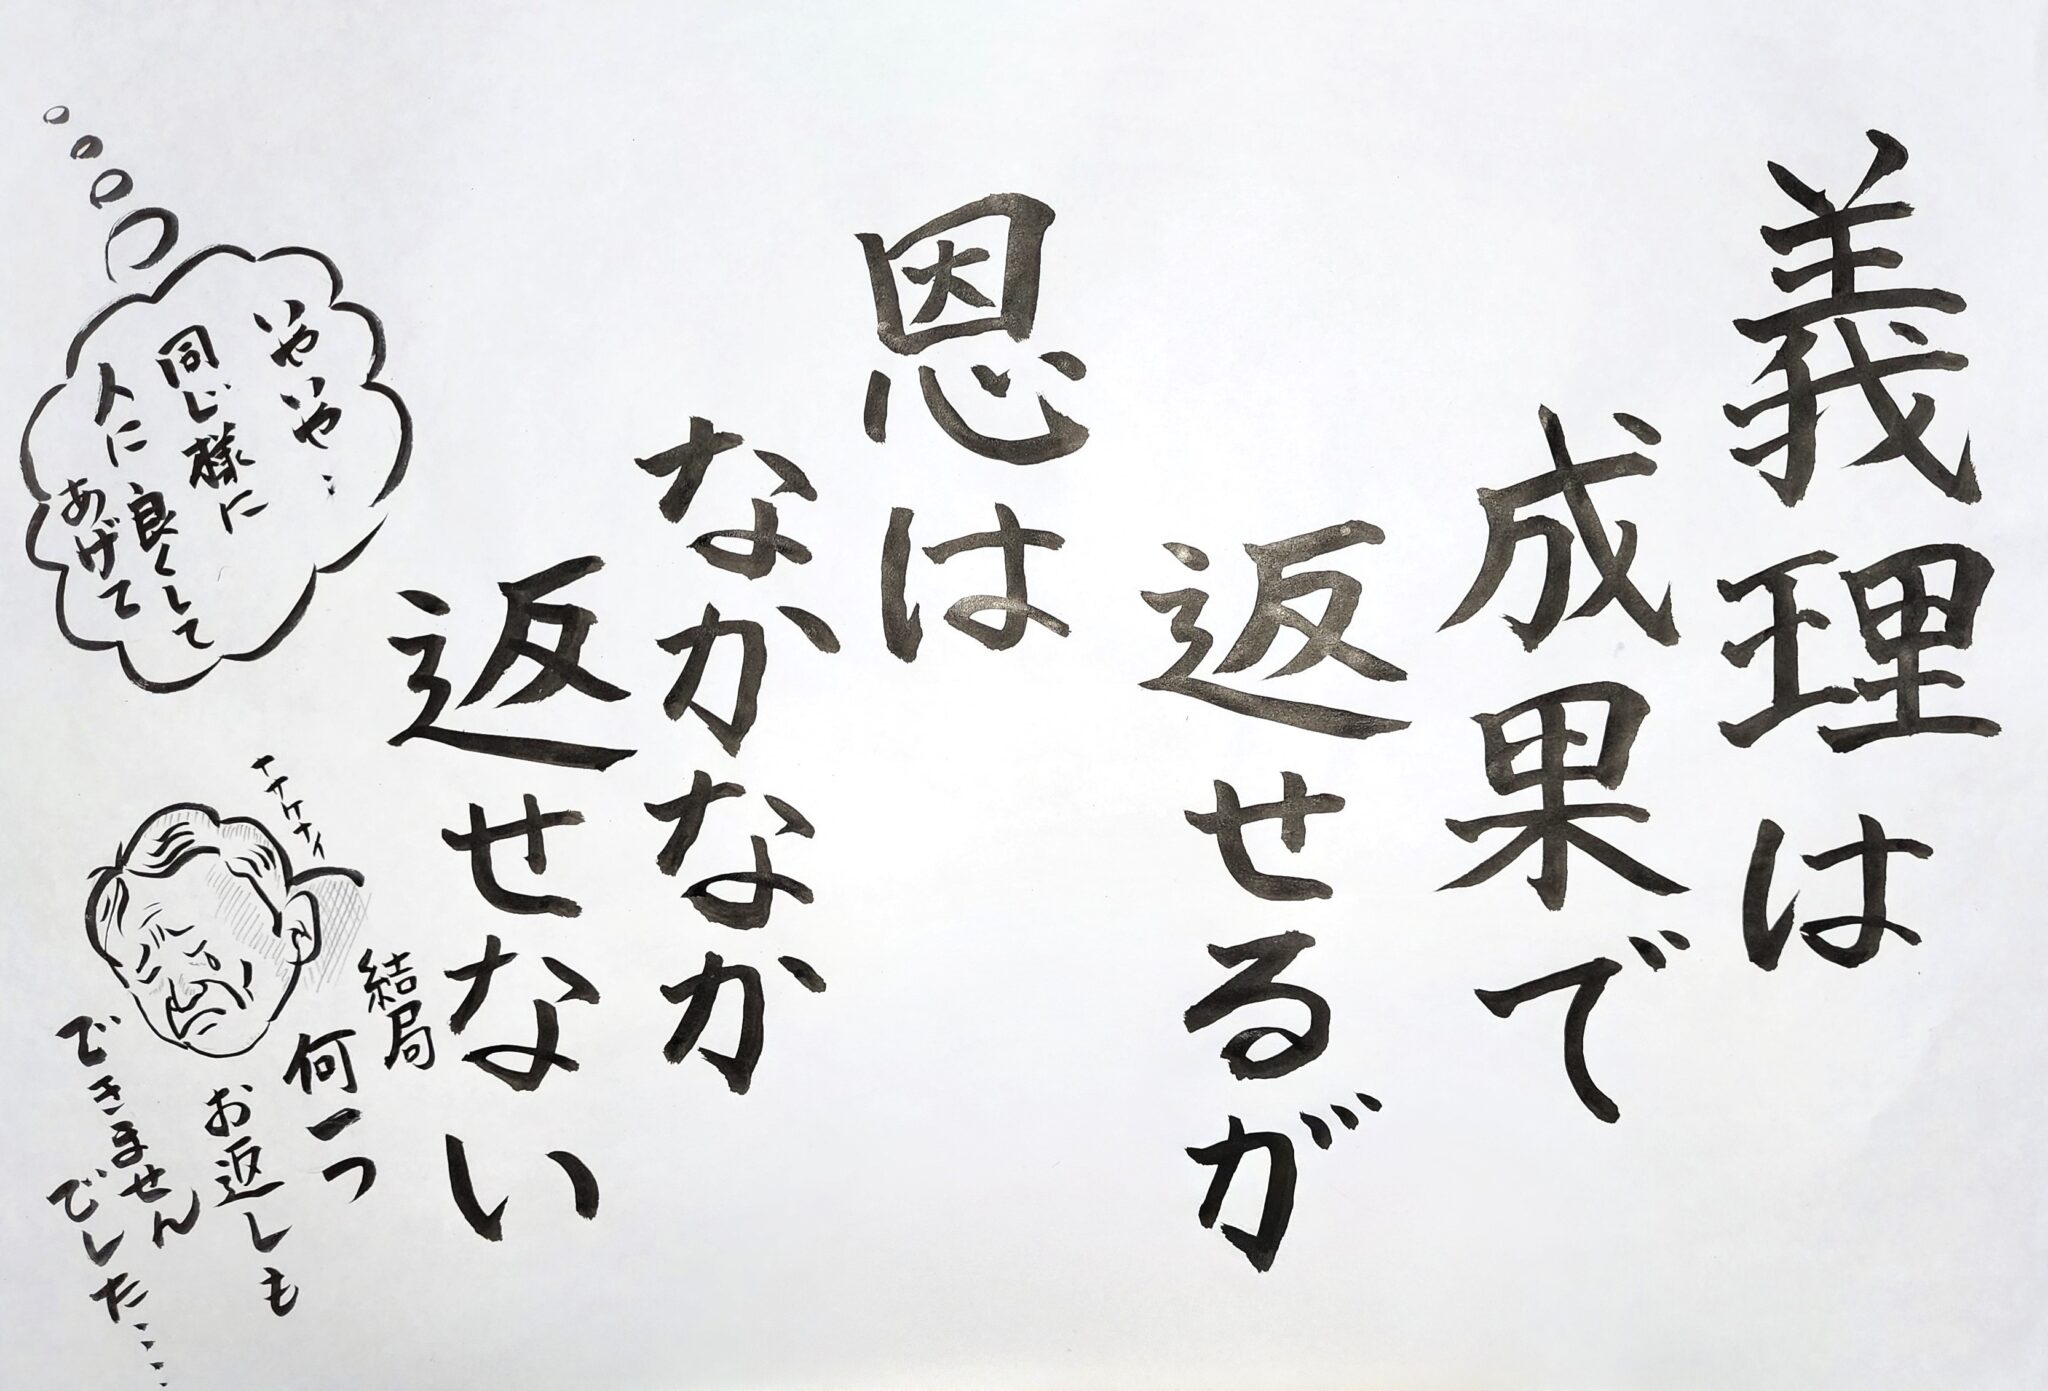 義理は
成果で
返せるが
恩は
なかなか
返せない
いやいや…
同じ様に
人に良くして
あげて
ナサケナイ
結局
何一つ
お返しも
できません
でした……